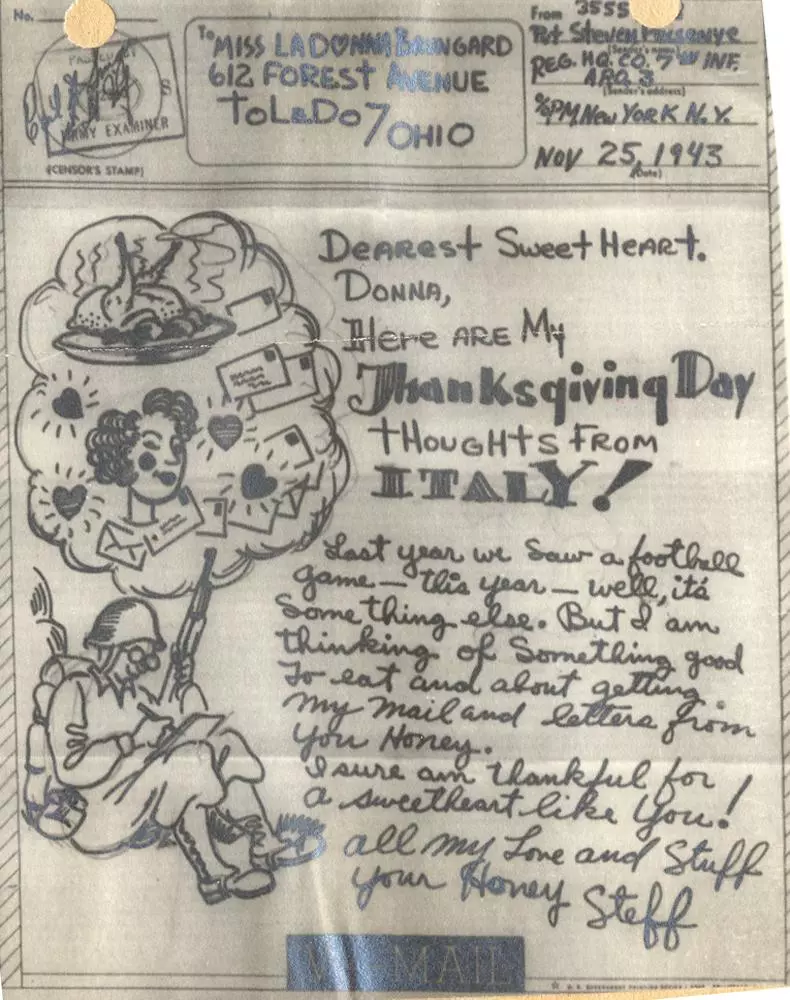 No.
PASSED BY
S
ARMY EXAMINER
(CENSOR'S STAMP)
To
MISS LADONNA BAUNGARD
612 FOREST AVENUE
ToLeDo 7 OHIO
From 3555
Pvt Steven
(Sender's name)
REG. HQ. CO. 7th INF.
A.P.O. 3
(Sender's address)
% PM New YORK N.Y.
Nov 25, 1943
(Date)
DeaRest Sweet HeaRt.
DONNA,
Here ARE My
Thanksgiving Day
tHouGHtS FROM
ITALY!
Last year we saw a football
game — this year — well, it's
Something else. But I am
thinking of Something good
To eat and about getting
my mail and letters from
you Honey.
I sure am thankful for
a sweetheart like You!
all my Love and Stuff
your Honey Steff
V MAIL